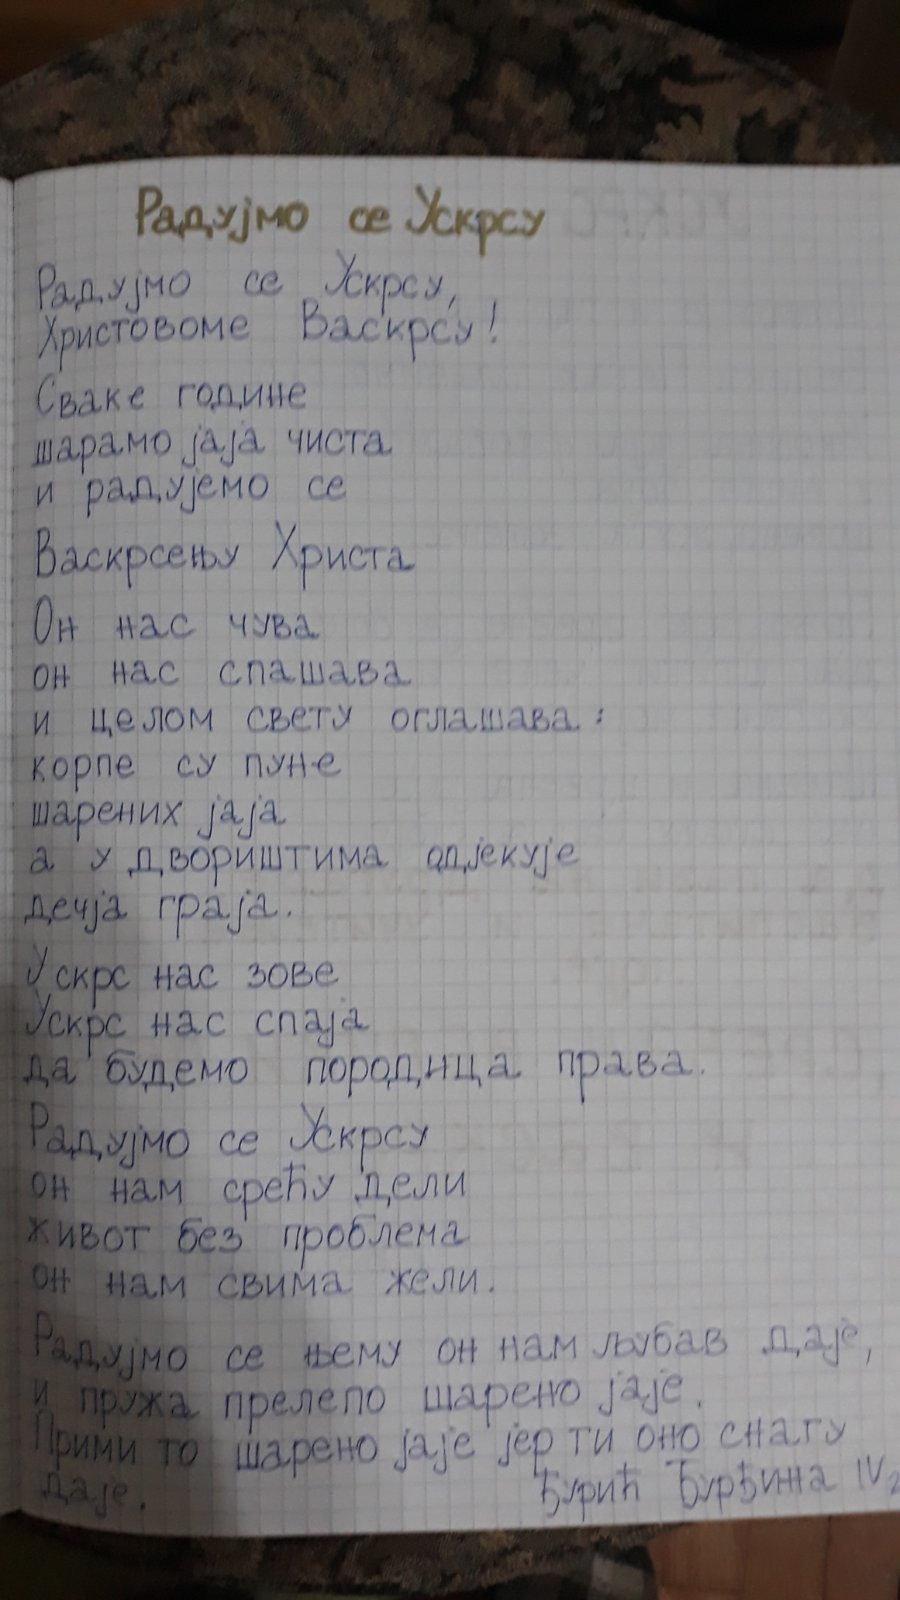 Радујмо се Ускрсу
Радујмо се Ускрсу,
Христовоме Васкрсу!
Сваке године
шарамо јаја чиста
и радујемо се
Васкрсењу Христа
Он нас чува
он нас спашава
и целом свету оглашава:
корпе су пуне
шарених јаја
а у двориштима одјекује
дечја граја.
Ускрс нас зове
Ускрс нас спаја
да будемо породица права.
Радујмо се Ускрсу
он нам срећу дели
живот без проблема
он нам свима жели.
Радујмо се њему он нам љубав даје,
и пружа прелепо шарено јаје.
Прими то шарено јаје јер ти оно снагу
даје. Ђурић Ђурђина IV2